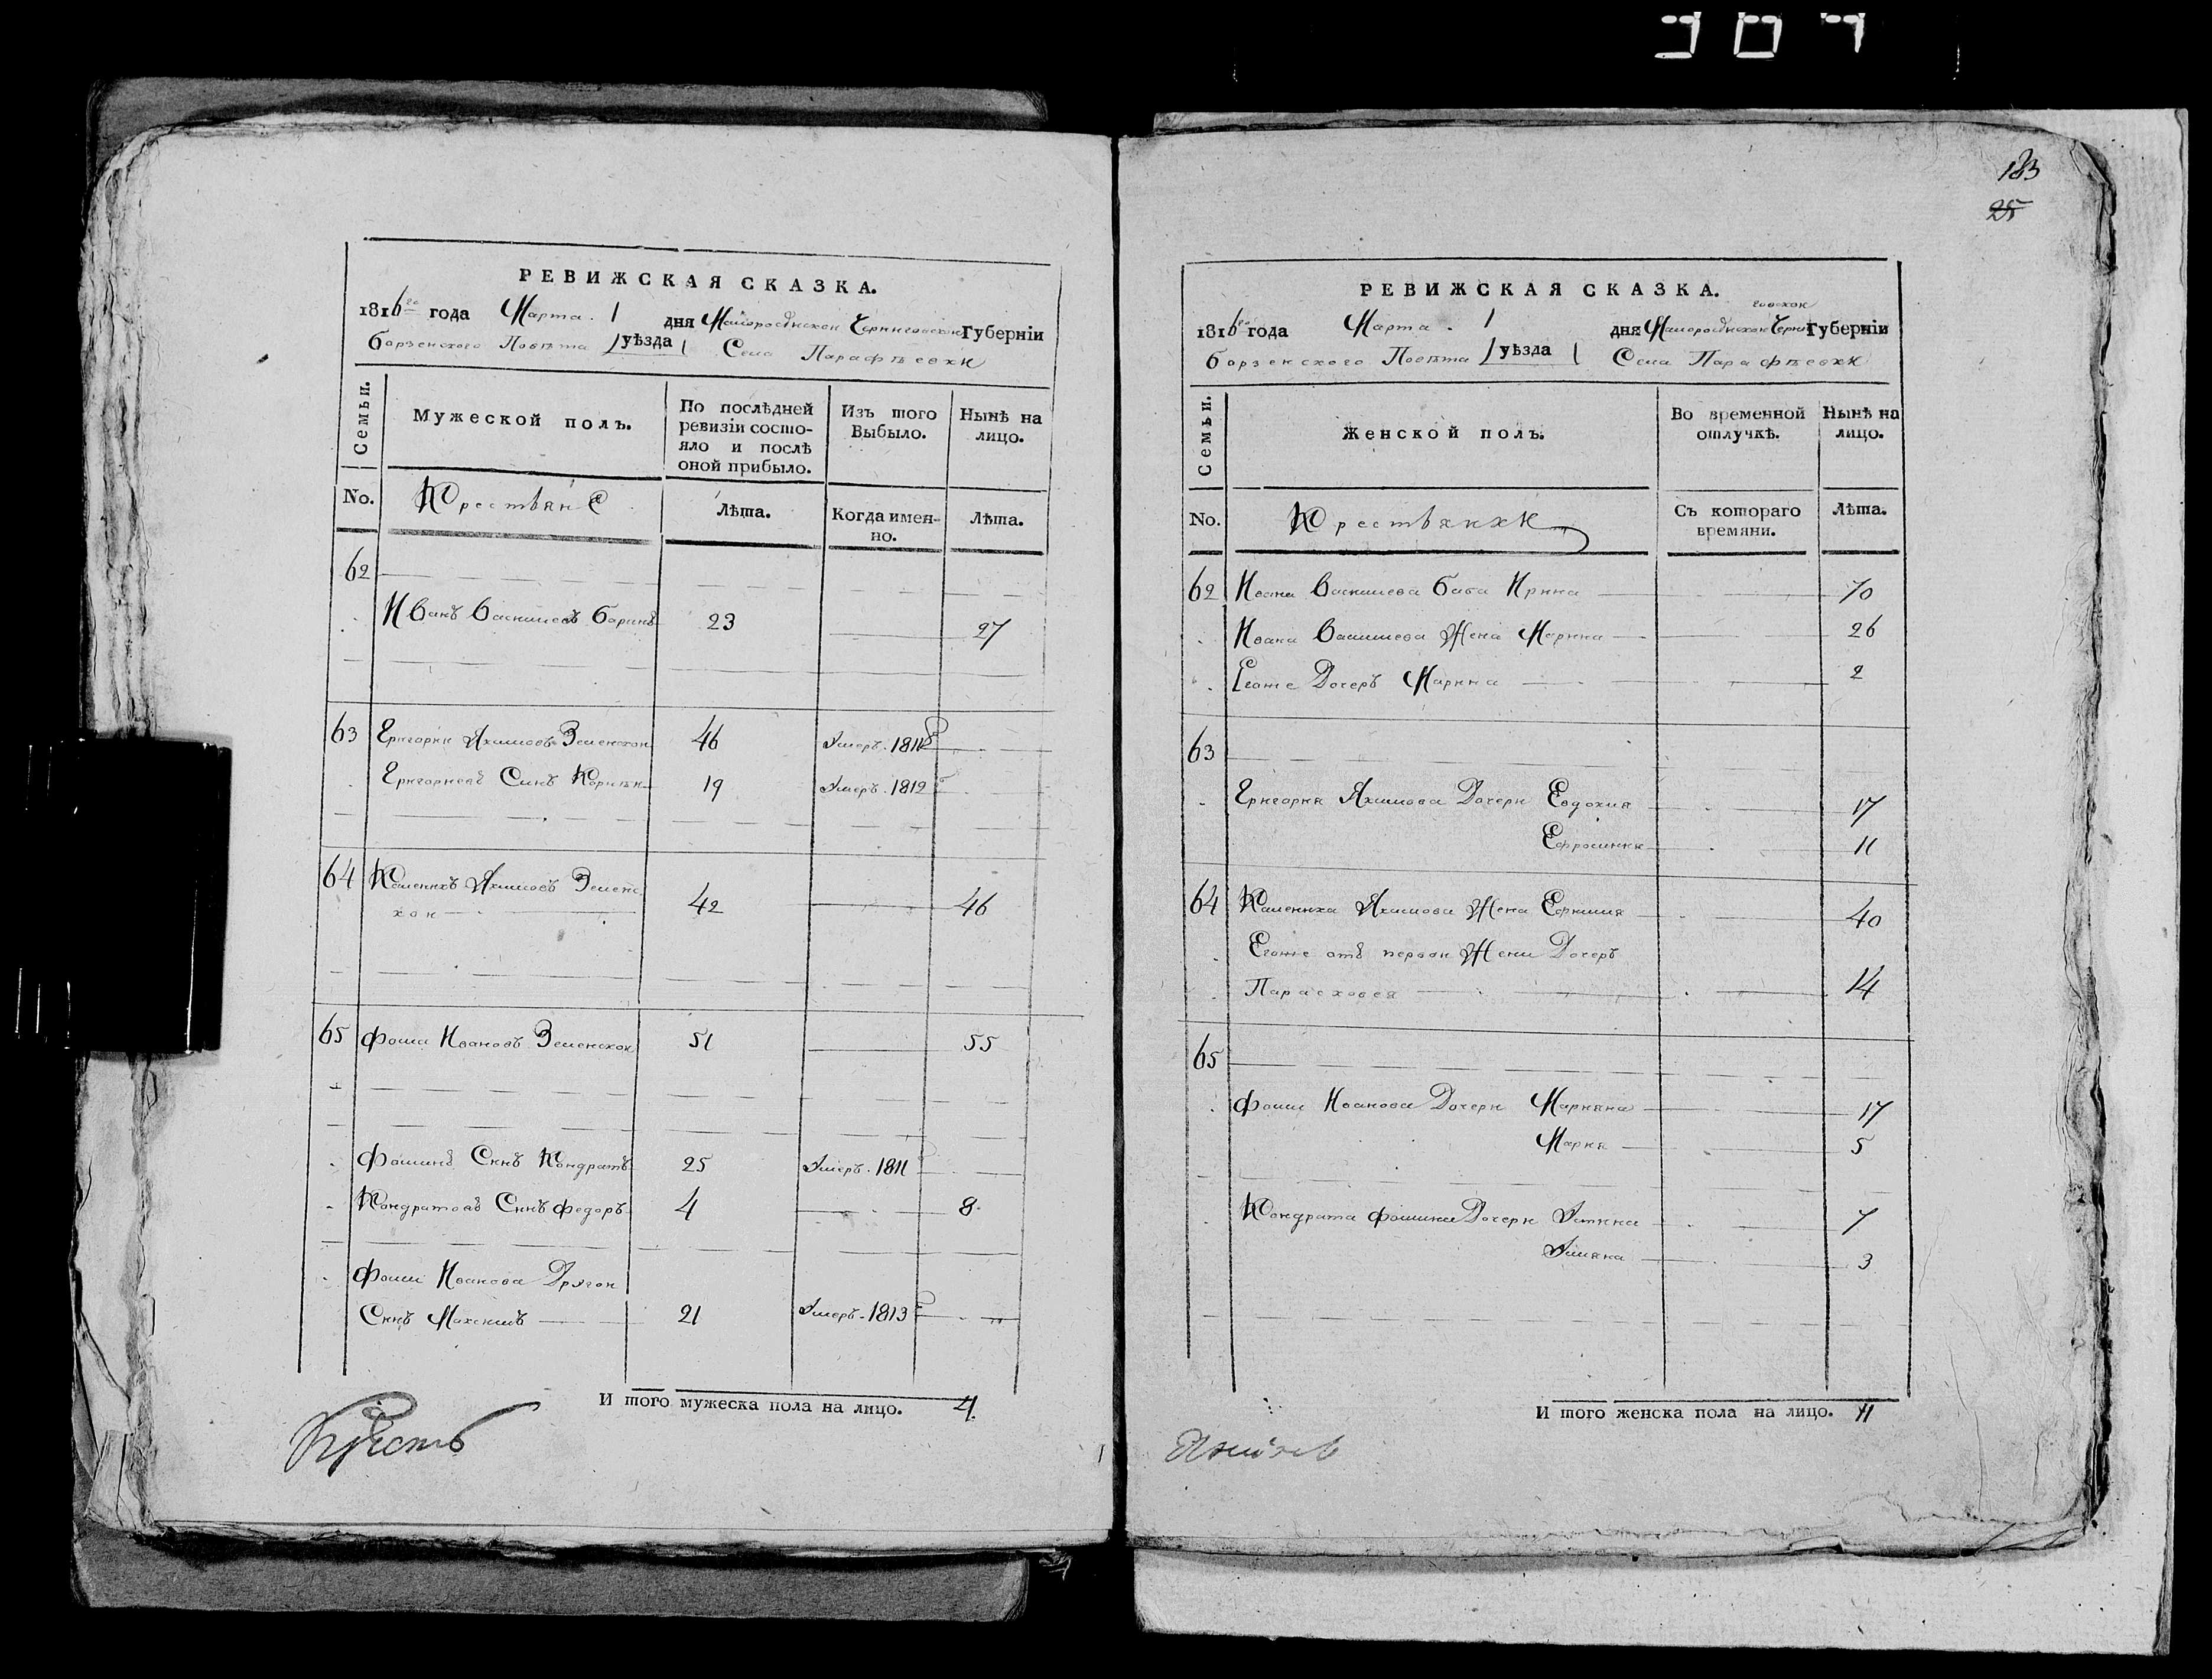 307
РЕВИЖСКАЯ СКАЗКА.
1816го года Марта 1 дня Малоросійской Черниговской Губерніи
борзенского Повѣта уѣзда Села Парафѣевки
Семьи.
Мужеской полъ.
По послѣдней ревизіи состояло и послѣ оной прибыло.
Изъ того Выбыло.
Нынѣ на лицо.
No.
Крестьяне
Лѣта.
Когда именно.
Лѣта.
62
Иванъ Василиевъ 23 27
63 Григорий Якимовъ Зеленской 46 Умеръ 1811
Григориевъ Синъ Корнѣй 19 Умеръ 1812
64 Каленикъ Якимовъ Зеленс
кой 42 46
65 Фома Ивановъ Зеленской 51 55
Фоминъ Синъ Кондратъ 25 Умеръ 1811
Кондратовъ Синъ Федоръ 4 8
Фоми Иванова Другой
Синъ Максимъ 21 Умеръ 1813
И того мужеска пола на лицо. 4.
183
25
РЕВИЖСКАЯ СКАЗКА.
1816го года Марта 1 дня Малоросійской Черниговской Губерніи
борзенского Повѣта уѣзда Села Парафѣевки
Семьи.
Женской полъ.
Во временной отлучкѣ.
Нынѣ на лицо.
No.
Крестьянки
Съ котораго времяни.
Лѣта.
62 Ивана Василиева баба Ирина 70
Ивана Василиева Жена Марина 26
Егоже Дочеръ Марина 2
63
Григория Якимова Дочери Евдокия 17
Ефросиния 11
64 Каленика Якимова Жена 40
Егоже отъ первой Жени Дочеръ
Парасковея 14
65
Фоми Иванова Дочери Марияна 17
Мария 5
Кондрата Фомина Дочери Устина 7
Улияна 3
И того женска пола на лицо. 11